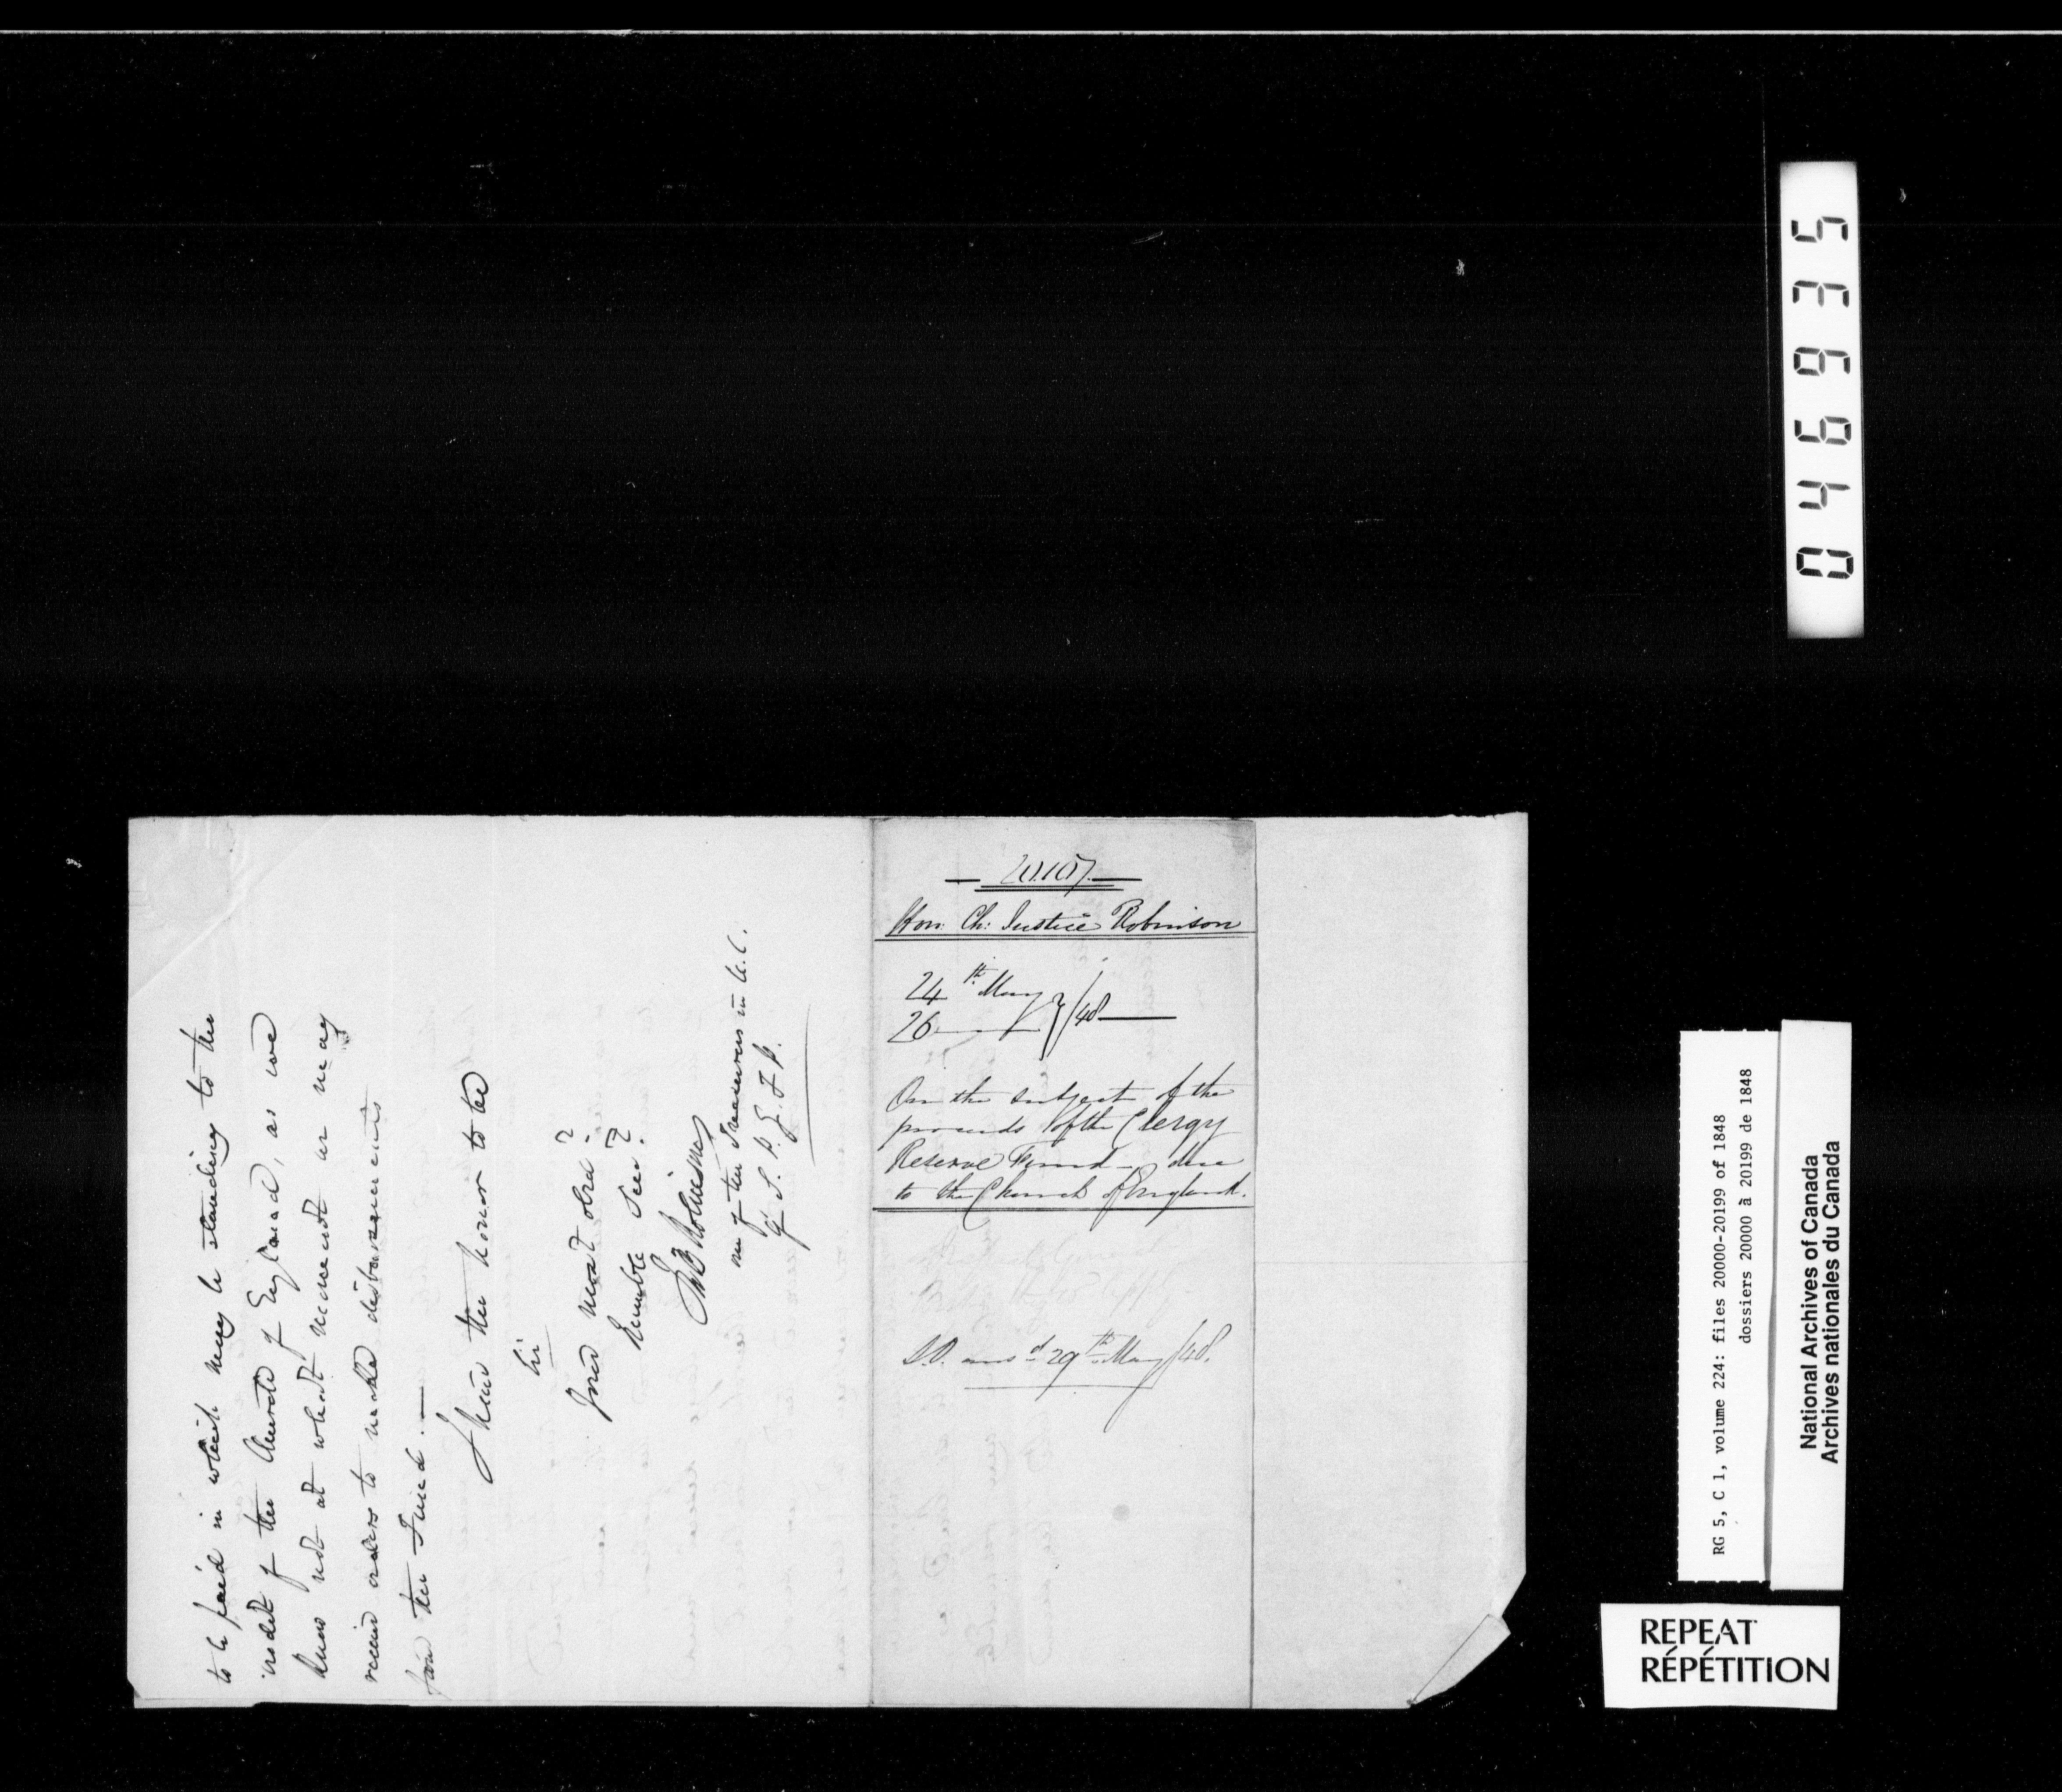 to be paid in which may be standing to the
credit of the Church of England, as we
know not at what moment we may
receive orders to make disbursements
from the Fund. —
I have the honor to be
Sir
Your most obed.t
humble Serv.t
J B Robinson
one of the Treasurers in U.C.
of S. P. G. F. P.
20.107.
Hon: Ch: Justice Robinson
24th May
26 /48
On the subject of the
proceeds of the Clergy
Reserve Fund – due
to the Church of England.
ansd 29th May/48.
046935
RG 5, C 1, volume 224: files 20000-20199 of 1848
dossiers 20000 à 20199 de 1848
National Archives of Canada
Archives nationales du Canada
REPEAT
RÉPÉTITION